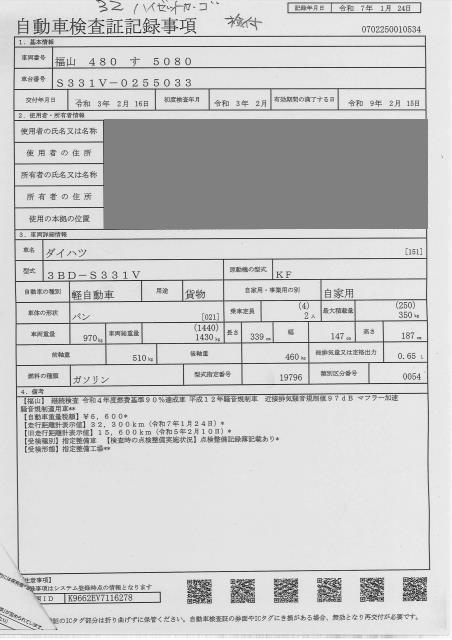 32 ハイゼットカーゴ
記録年月日 令和 7年 1月 24日
自動車検査証記録事項
0702250010534
1．基本情報
車両番号 福山 480 す 5080
車台番号 S331V-0255033
交付年月日 令和 3年 2月 16日 初度検査年月 令和 3年 2月 有効期間の満了する日 令和 9年 2月 15日
2．使用者・所有者情報
使用者の氏名又は名称
使用者の住所
所有者の氏名又は名称
所有者の住所
使用の本拠の位置
3．車両詳細情報
車名 ダイハツ [151]
型式 3BD-S331V 原動機の型式 KF
自動車の種別 軽自動車 用途 貨物 自家用・事業用の別 自家用
車体の形状 バン [021] 乗車定員 (4) 2人 最大積載量 (250) 350kg
車両重量 970kg 車両総重量 (1440) 1430kg 長さ 339cm 幅 147cm 高さ 187cm
前軸重 510kg 後軸重 460kg 総排気量又は定格出力 0.65 L
燃料の種類 ガソリン 型式指定番号 19796 類別区分番号 0054
4．備考
【福山】 継続検査 令和4年度燃費基準90%達成車 平成12年騒音規制車 近接排気騒音規制値97dB マフラー加速
騒音規制適用車**
【自動車重量税額】¥6，600*
【走行距離計表示値】32，300km（令和7年1月24日）*
【旧走行距離計表示値】15，600km（令和5年2月10日）*
【受検種別】指定整備車 【検査時の点検整備実施状況】点検整備記録簿記載あり*
【受検形態】指定整備工場**
注意事項】
事項はシステム登録時点の情報となります
ID K9662EV7116278
証のICタグ部分は折り曲げずに保管ください。自動車検査証の券面やICタグにき損がある場合、無効となり再交付が必要です。